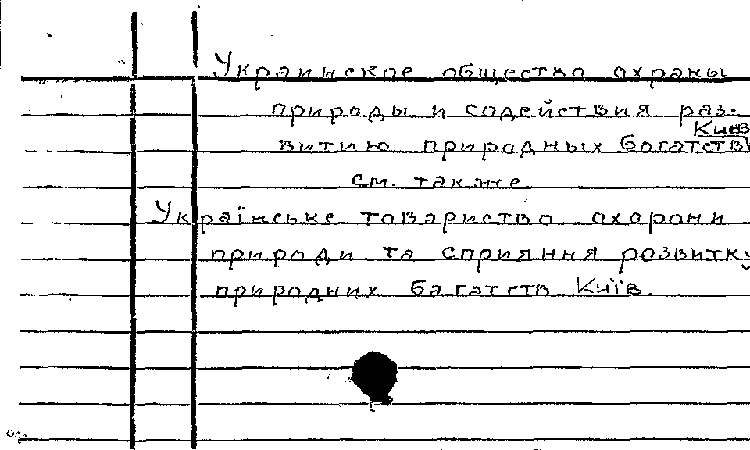 Украинское общество охраны
природы и содействия раз-
Киев
витию природных богатств
см. также
Українське товариство охорони
природи та сприяння розвитку
природних багатств Київ.